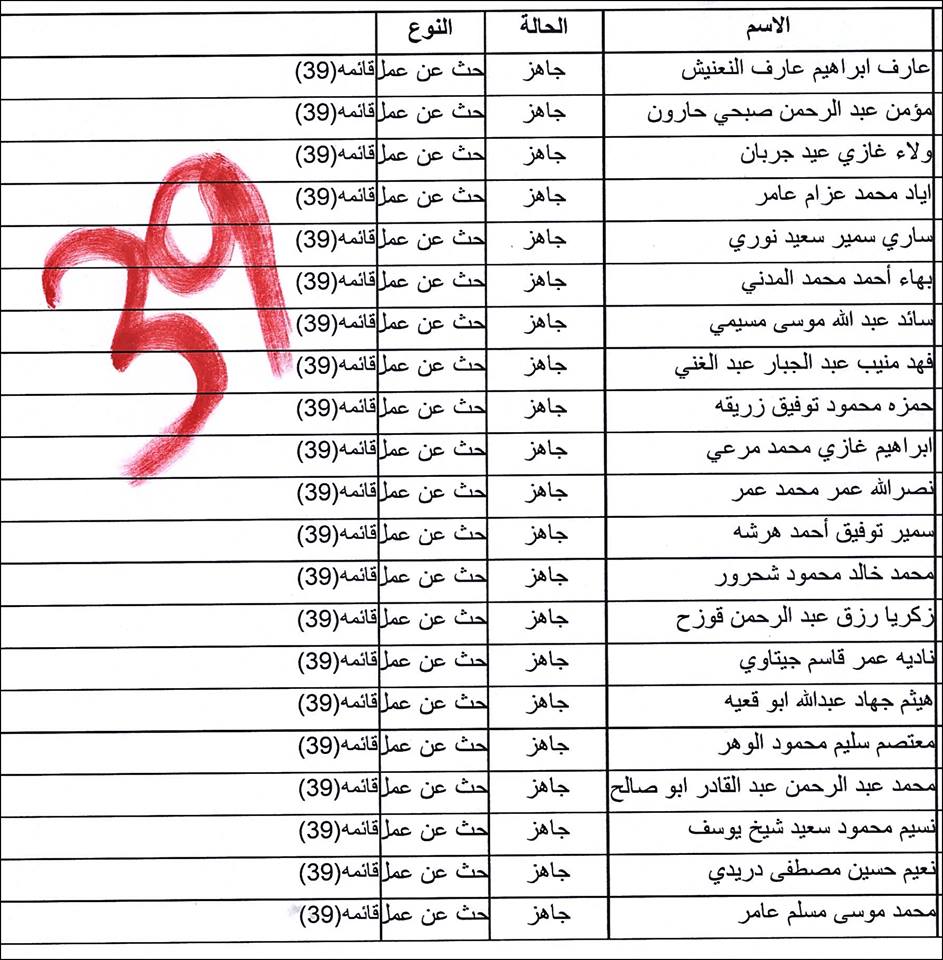 الاسم الحالة النوع
عارف ابراهيم عارف النعنيش جاهز حث عن عمل قائمه(39)
مؤمن عبد الرحمن صبحي حارون جاهز حث عن عمل قائمه(39)
ولاء غازي عيد جربان جاهز حث عن عمل قائمه(39)
اياد محمد عزام عامر جاهز حث عن عمل قائمه(39)
ساري سمير سعيد نوري جاهز حث عن عمل قائمه(39)
بهاء أحمد محمد المدني جاهز حث عن عمل قائمه(39)
سائد عبد الله موسى مسيمي جاهز حث عن عمل قائمه(39)
فهد منيب عبد الجبار عبد الغني جاهز حث عن عمل قائمه(39)
حمزه محمود توفيق زريقه جاهز حث عن عمل قائمه(39)
ابراهيم غازي محمد مرعي جاهز حث عن عمل قائمه(39)
نصرالله عمر محمد عمر جاهز حث عن عمل قائمه(39)
سمير توفيق أحمد هرشه جاهز حث عن عمل قائمه(39)
محمد خالد محمود شحرور جاهز حث عن عمل قائمه(39)
زكريا رزق عبد الرحمن قوزح جاهز حث عن عمل قائمه(39)
ناديه عمر قاسم جيتاوي جاهز حث عن عمل قائمه(39)
هيثم جهاد عبدالله ابو قعيه جاهز حث عن عمل قائمه(39)
معتصم سليم محمود الوهر جاهز حث عن عمل قائمه(39)
محمد عبد الرحمن عبد القادر ابو صالح جاهز حث عن عمل قائمه(39)
نسيم محمود سعيد شيخ يوسف جاهز حث عن عمل قائمه(39)
نعيم حسين مصطفى دريدي جاهز حث عن عمل قائمه(39)
محمد موسى مسلم عامر جاهز حث عن عمل قائمه(39)
39